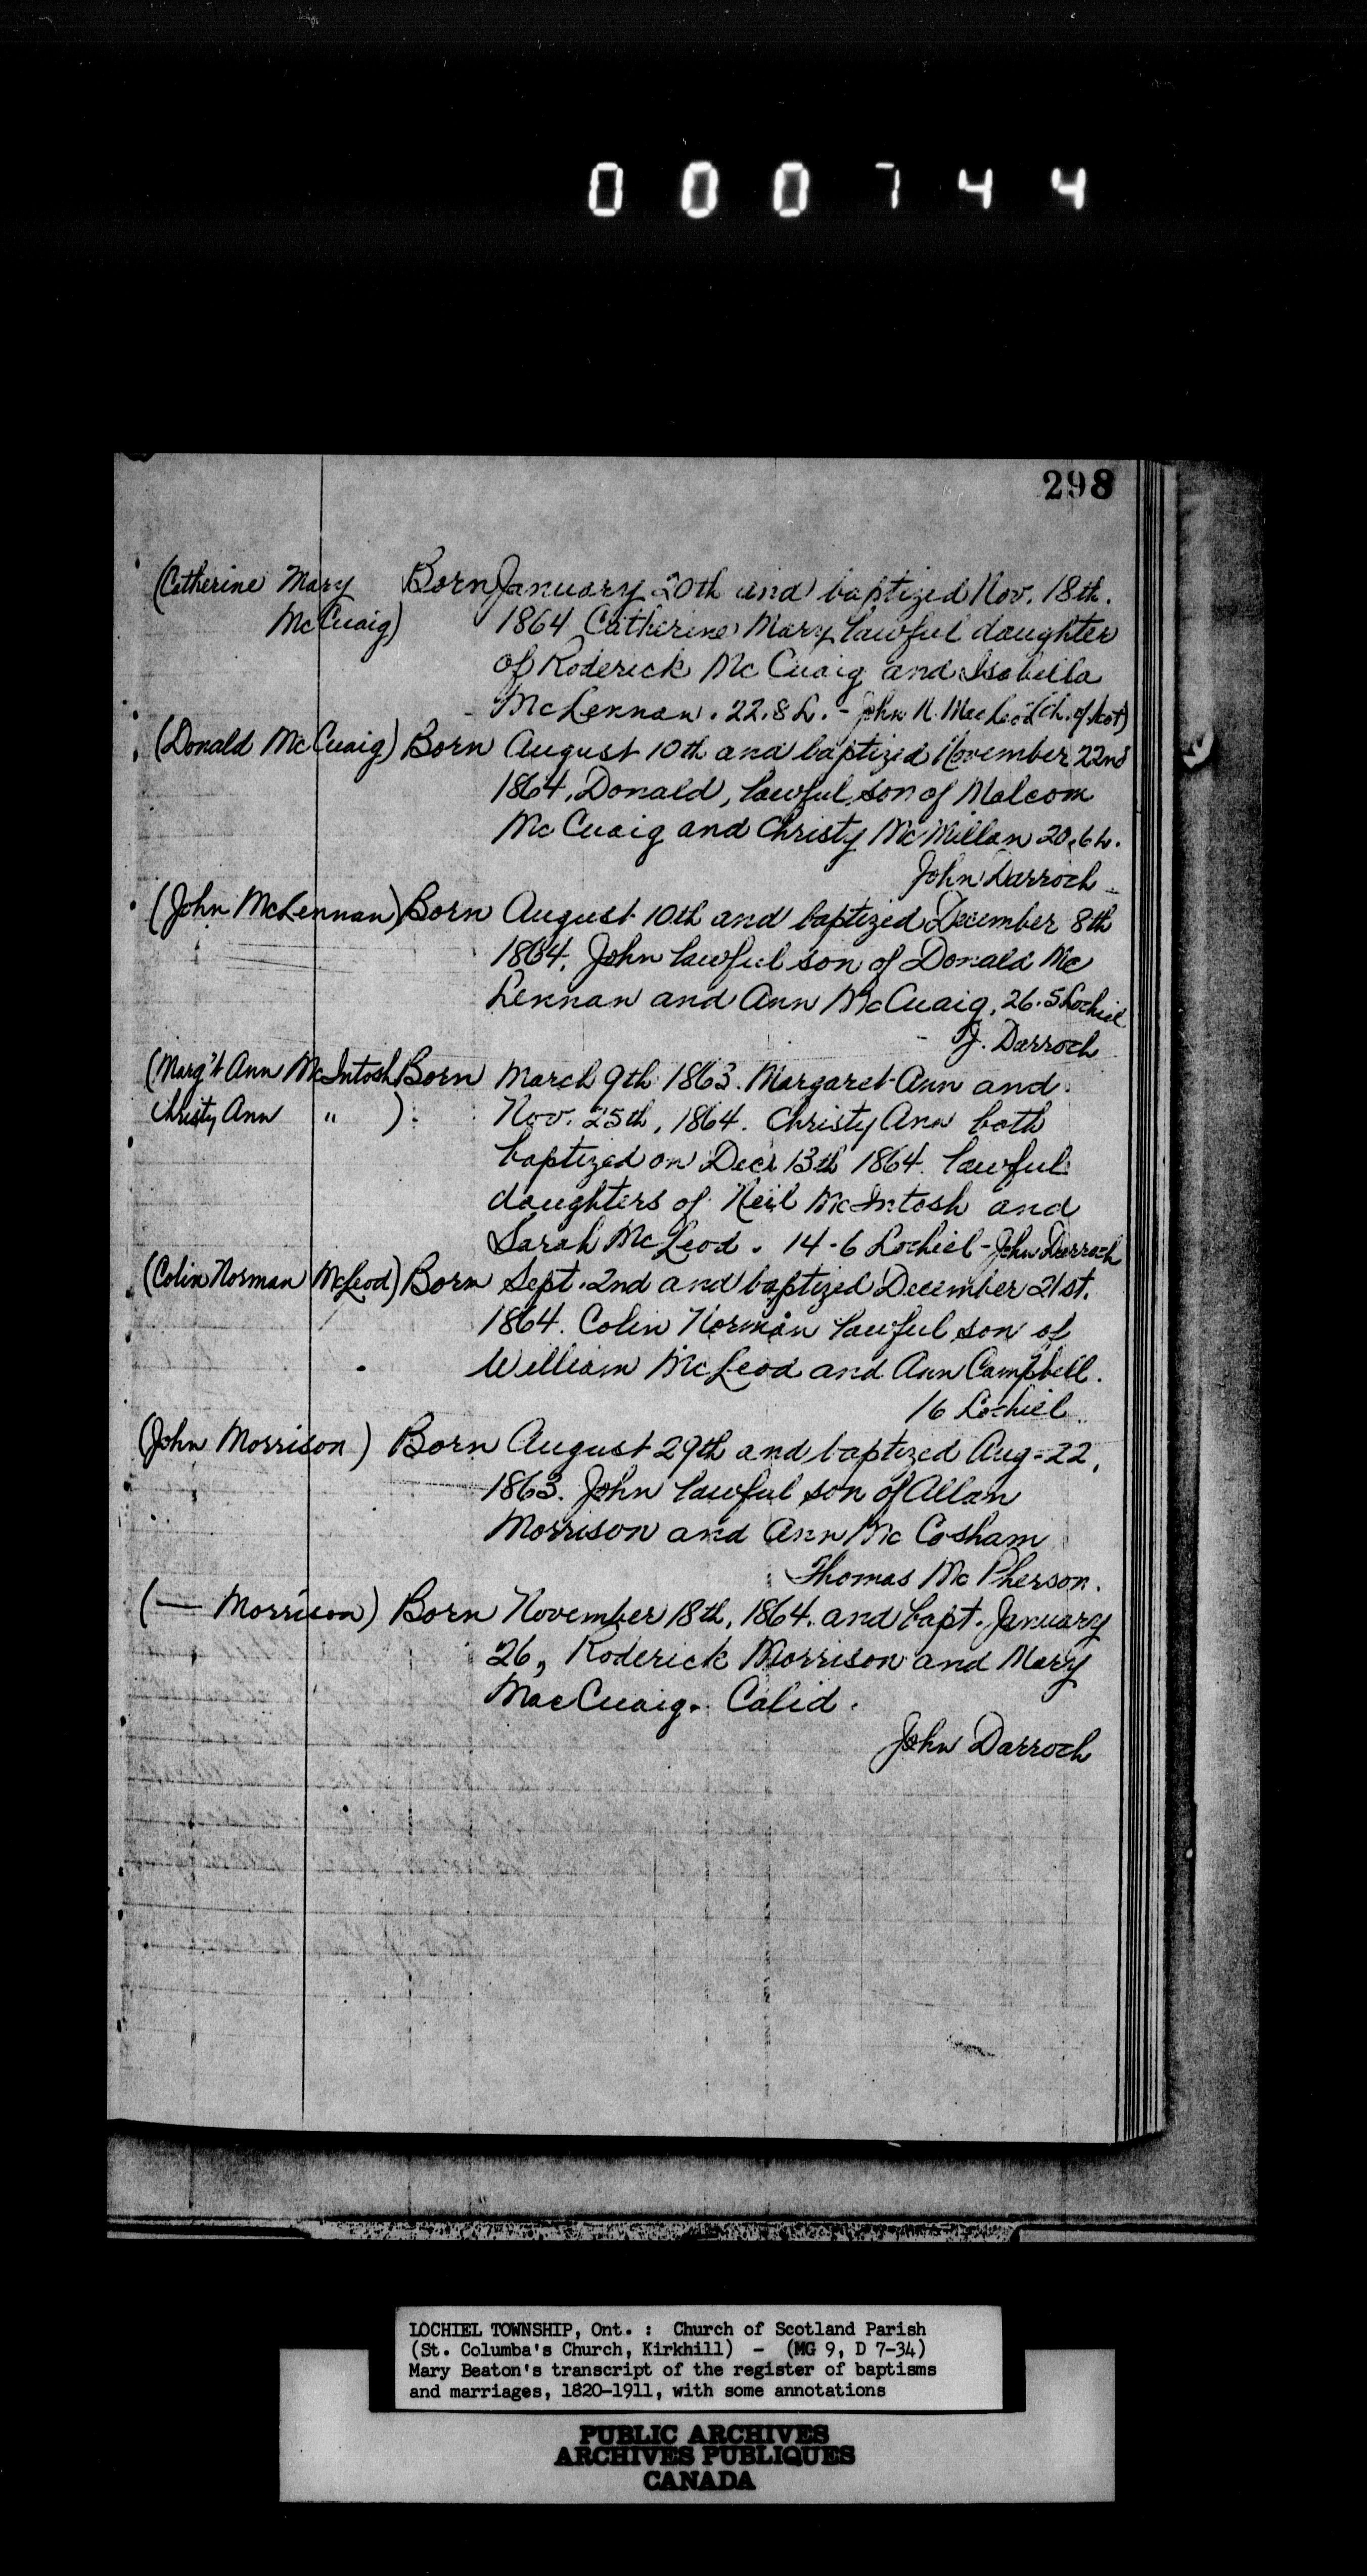 000744
298
(Catherine Mary McCuaig) Born January 20th and baptized Nov. 18th.
1864 Catherine Mary lawful daughter
of Roderick McCuaig and Isabella
McLennan. 22.8 L. - John N. MacLeod (Ch. of Scot)
(Donald McCuaig) Born August 10th and baptized November 22nd
1864, Donald, lawful son of Malcom
McCuaig and Christy McMillan 20.6 L.
John Darroch
(John McLennan) Born August 10th and baptized December 8th
1864, John lawful son of Donald Mc
Lennan and Ann McCuaig, 26.5 Lochiel
- J. Darroch
(Marg't Ann McIntosh Born March 9th 1863. Margaret Ann and
Christy Ann " ) Nov. 25th, 1864. Christy Ann both
baptized on Dec. 13th 1864. lawful
daughters of Neil McIntosh and
Sarah McLeod. 14-6 Lochiel - John Darroch
(Colin Norman McLeod) Born Sept. 2nd and baptized December 21st.
1864. Colin Norman lawful son of
William McLeod and Ann Campbell.
16 Lochiel.
(John Morrison) Born August 29th and baptized Aug-22,
1863. John lawful son of Allan
Morrison and Ann McCosham
Thomas McPherson.
(— Morrison) Born November 18th, 1864. and bapt. January
26, Roderick Morrison and Mary
MacCuaig. Calid.
John Darroch
LOCHIEL TOWNSHIP, Ont. : Church of Scotland Parish
(St. Columba's Church, Kirkhill) - (MG 9, D 7-34)
Mary Beaton's transcript of the register of baptisms
and marriages, 1820-1911, with some annotations
PUBLIC ARCHIVES
ARCHIVES PUBLIQUES
CANADA